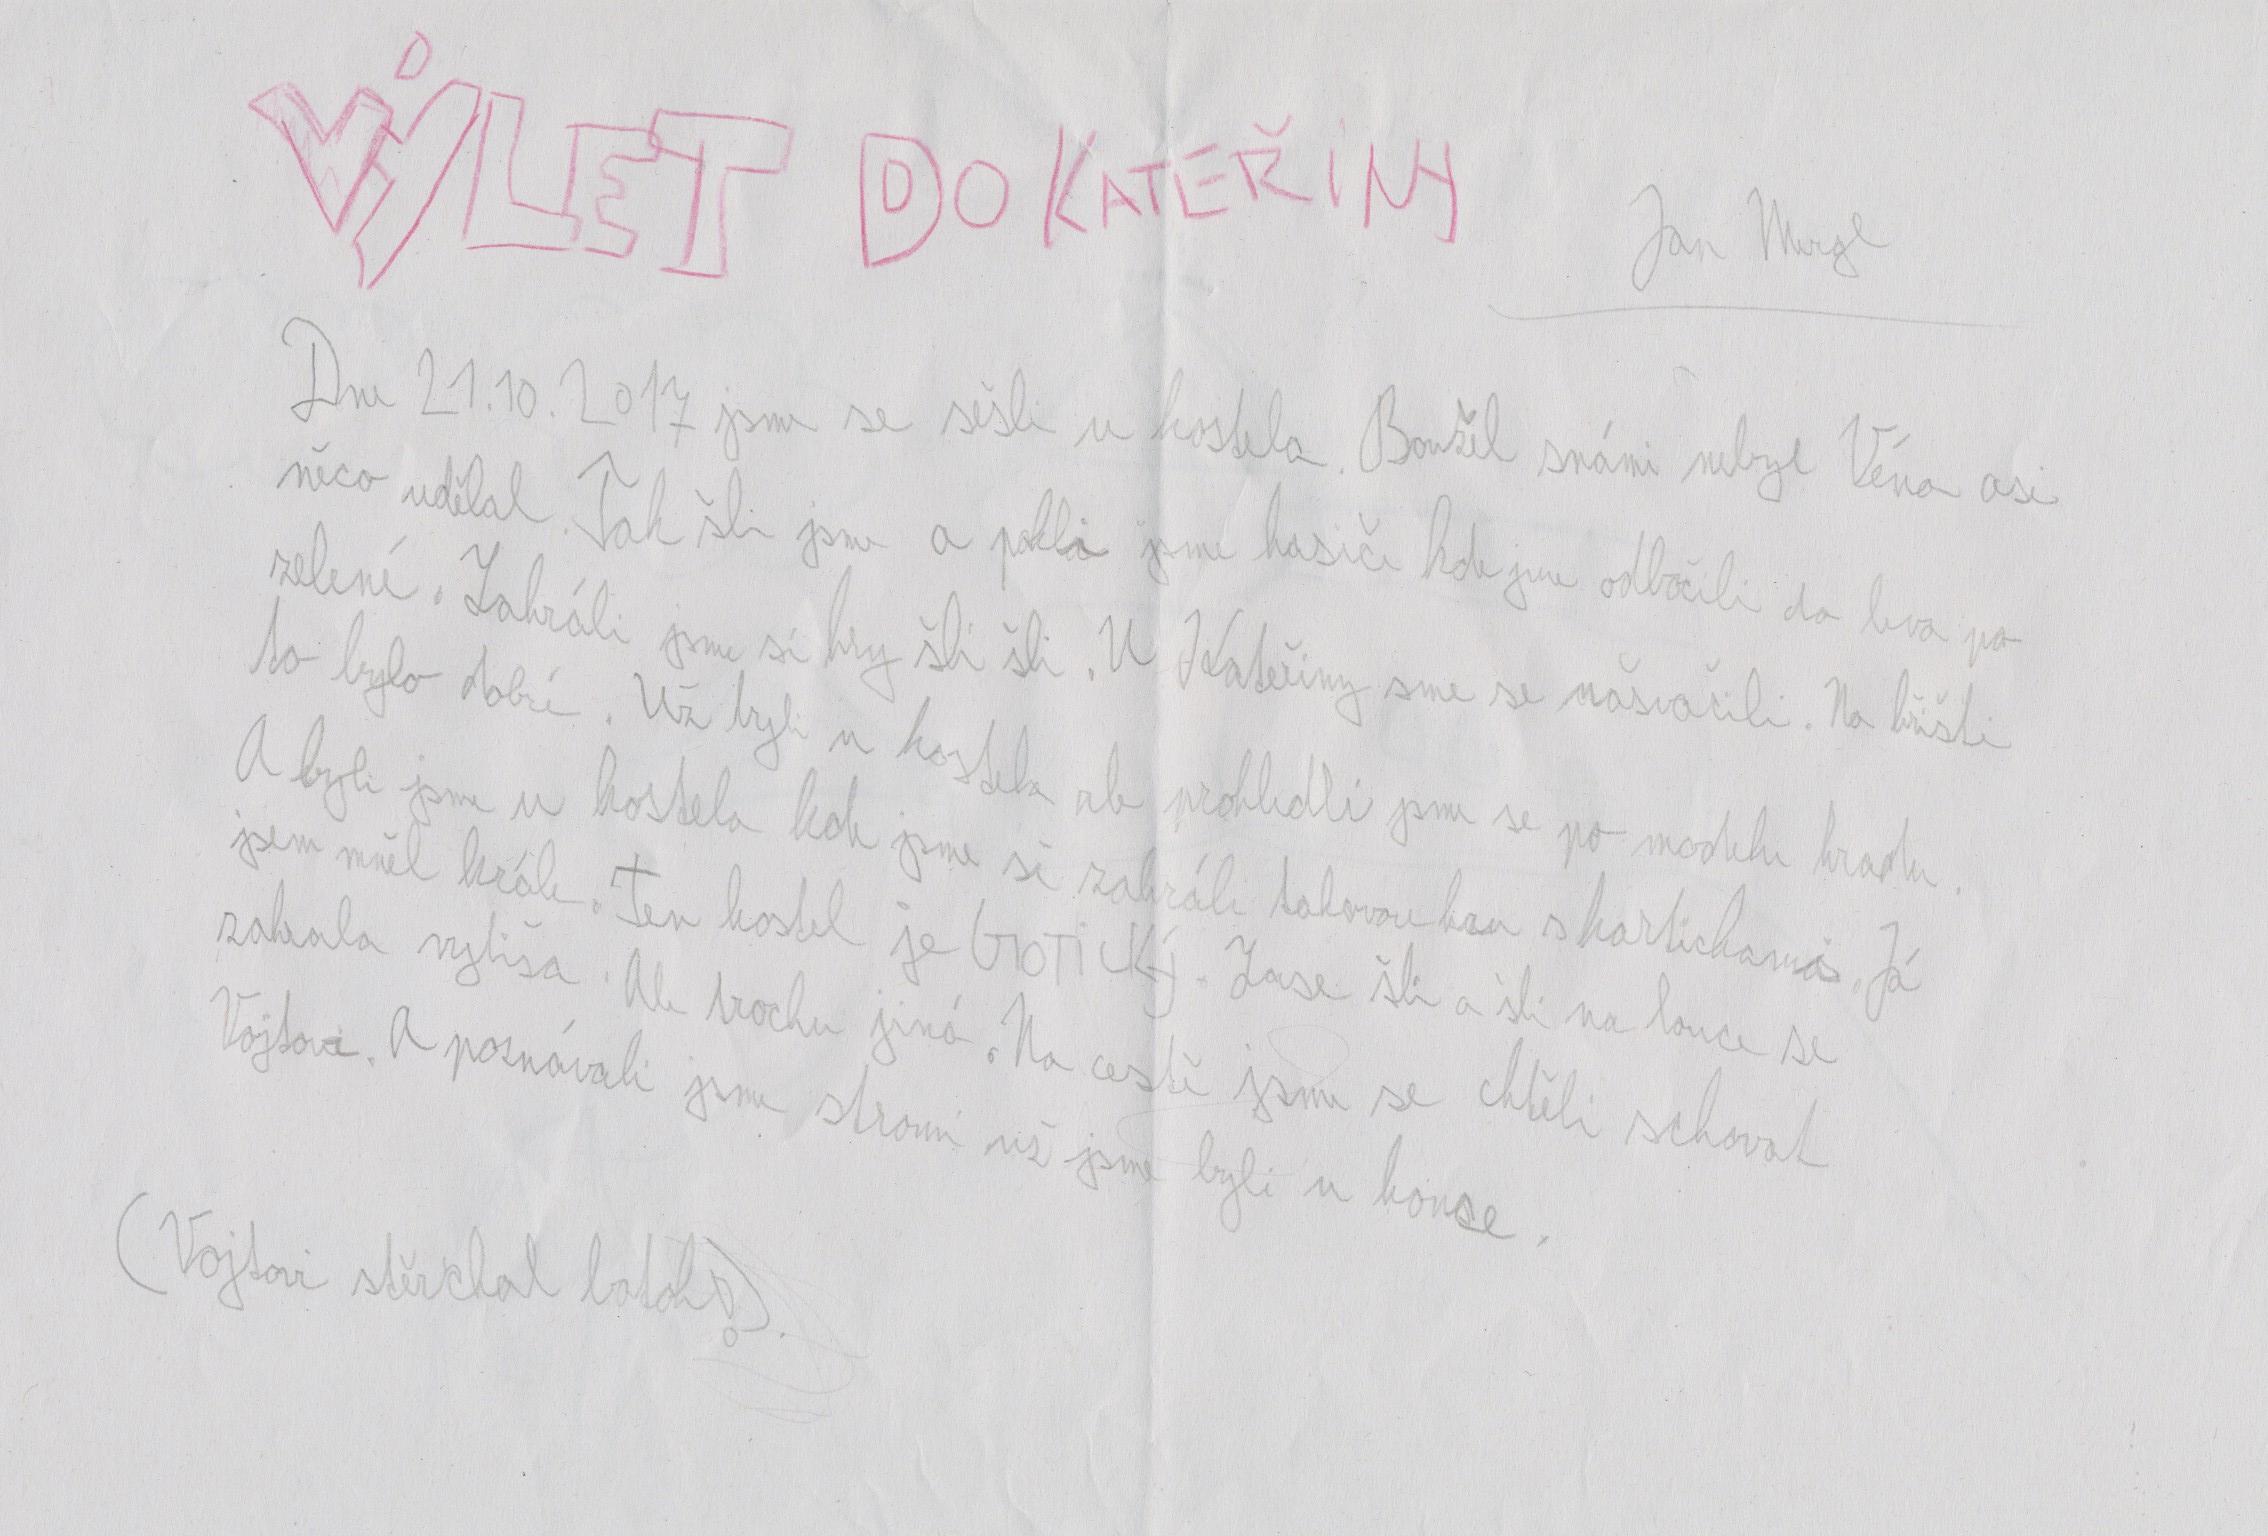 VÝLET DO KATEŘINY
Jan Mergl
Dne 21.10.2017 jsme se sešli u kostela. Boužel snámi nebyl Véna asi
něco udělal. Tak šli jsme a potkli jsme hasiče kde jsme odbočili do leva po
zelené. Zahráli jsme si hry šli šli. U Kateřiny sme se nasvačili. Na hřišti
to bylo dobré. Už byli u kostela ale prohledli jsme se po modelu hradu.
A byli jsme u kostela kde jsme si zahráli takovou hru skartichamis. Já
jsem mněl krále. Ten kostel je GOTICKÝ. Zase šli a šli na louce se
zahrala vybiša. Ale trochu jiná. Na cestě jsme se chtěli schovat
Vojtovi. A poznávali jsme stromi už jsme byli u konse.
(Vojtovi stěrchal batoh!).